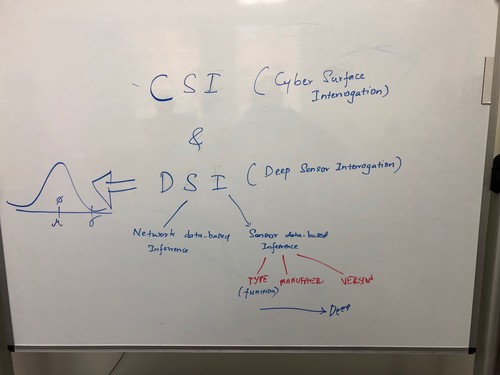 CSI (Cyber Surface
Interrogation)
&
DSI (Deep Sensor Interrogation)
μ σ
Network data-based
Inference
Sensor data-based
Inference
TYPE
(function)
VERSION
Deep